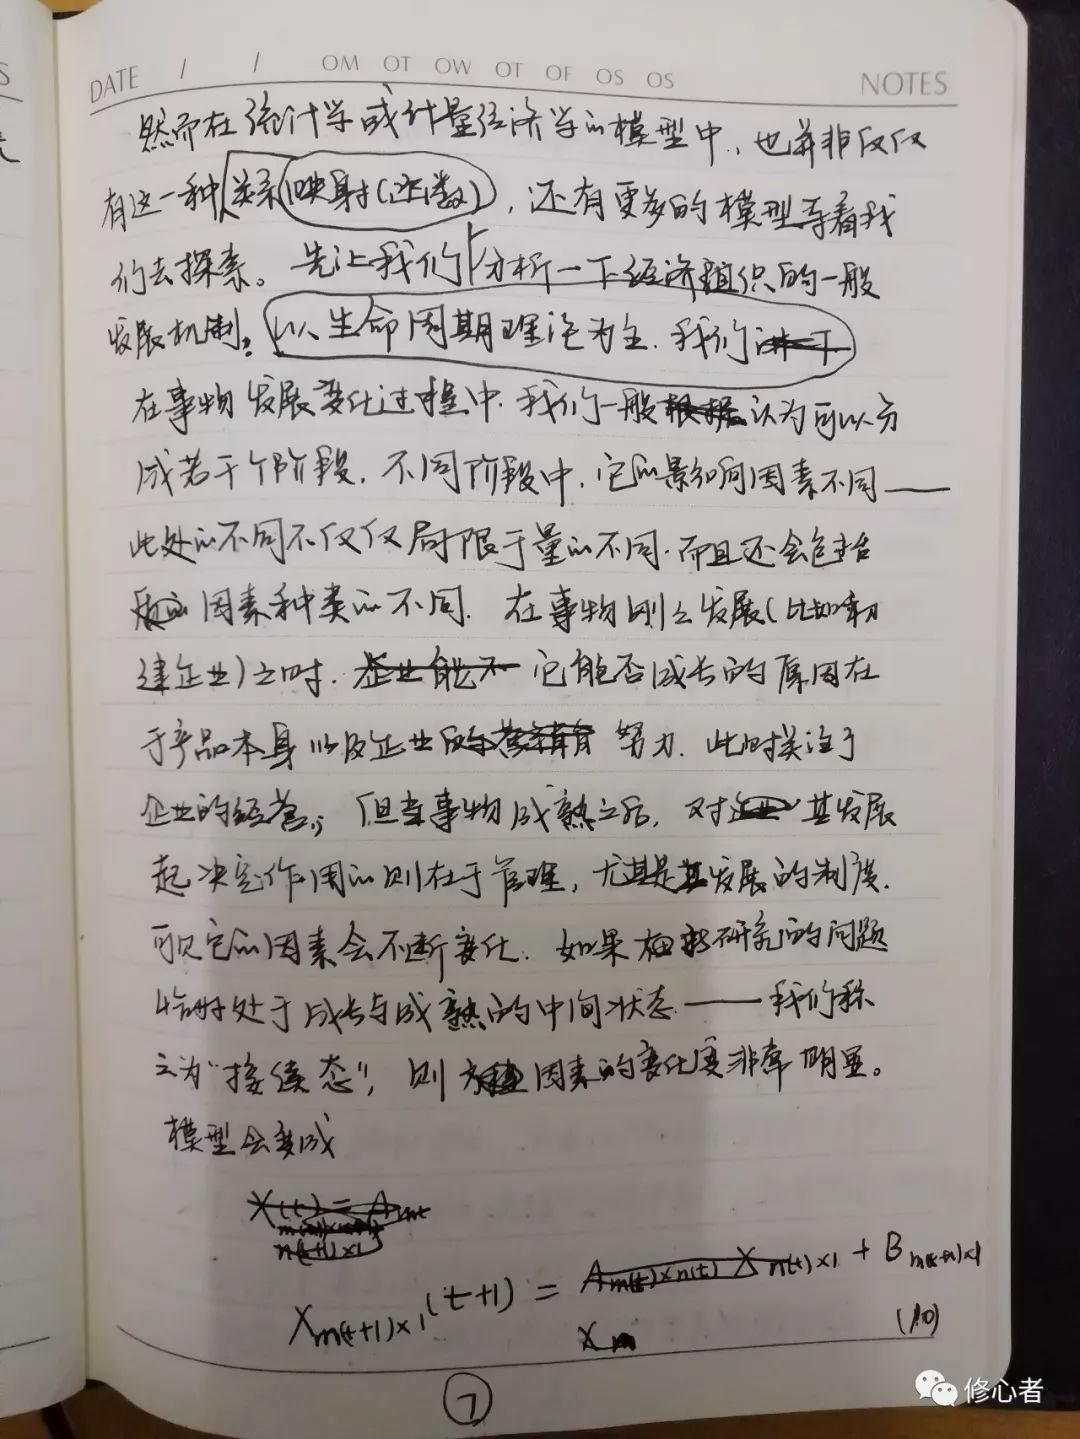 DATE / / OM OT OW OT OF OS OS NOTES
然而在统计学或计量经济学的模型中，也并非仅仅
有这一种关系映射(函数)，还有更多的模型等着我
们去探索。先让我们分析一下经济组织的一般
发展机制。以生命周期理论为主.我们
在事物发展变化过程中.我们一般认为可以分
成若干个阶段.不同阶段中.它的影响因素不同——
此处的不同不仅仅局限于量的不同.而且还会包括
因素种类的不同.在事物刚之发展(比如初
建企业)之时.它能否成长的原因在
于产品本身以及企业的努力.此时关注于
企业的经营；但当事物成熟之后.对其发展
起决定作用的则在于管理，尤其是其发展的制度.
可见它的因素会不断变化.如果研究的问题
恰好处于成长与成熟的中间状态——我们称
之为“接续态”，则因素的变化度非常明显。
模型会变成
X(t) = A
n(t+1)×1
Xm(t+1)×1(t+1) = Am(t)×n(t) Xn(t)×1 + Bm(t+1)×1
Xm (10)
7
修心者